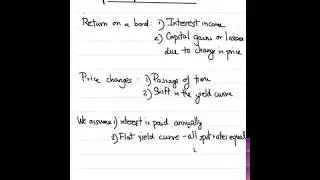 Return on a bond: 1) Interest income
2) Capital gains or losses
due to change in price
Price changes: 1) Passage of time
2) Shift in the yield curve
We assume 1) interest is paid annually
2) Flat yield curve - all spot rates equal